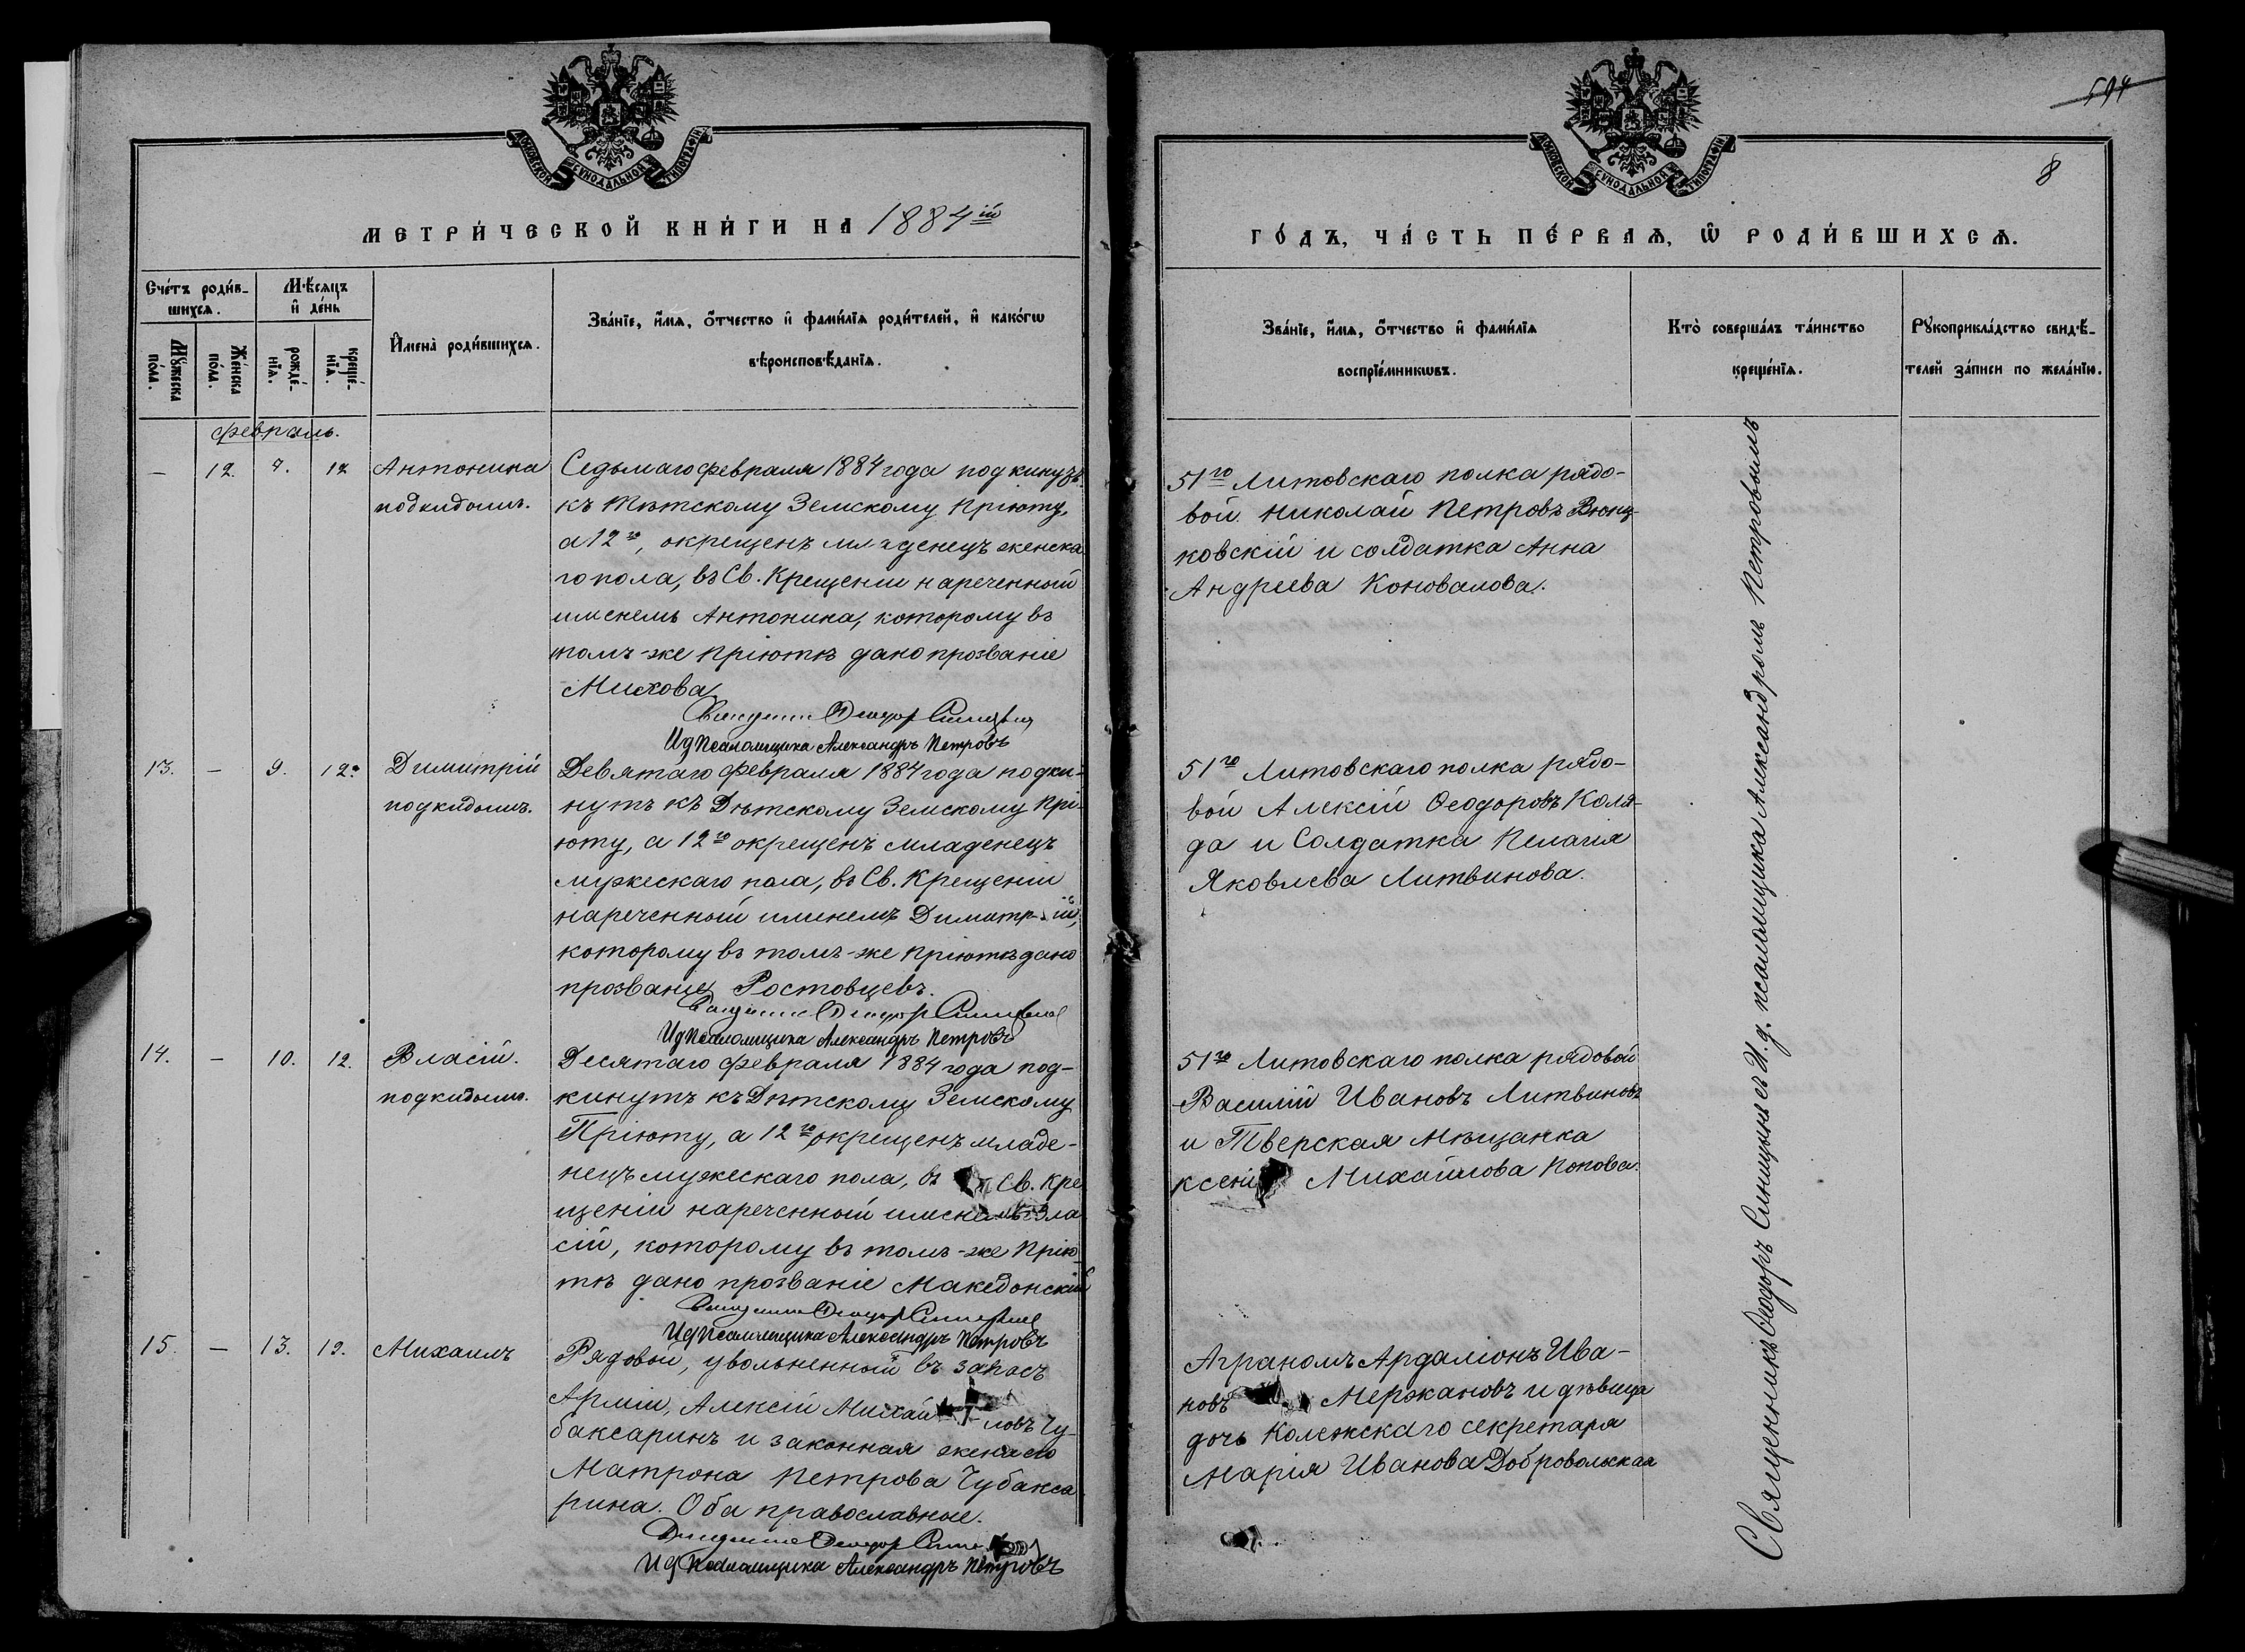 МОСКОВСКОЙ СУНОДАЛЬНОЙ ТИПОГРАФІИ
МЕТРИ́ЧЕСКОЙ КНИ́ГИ НА 1884ій
Сче́тъ роди́в-
шихся.
Мѣ́сяцъ
и҆ де́нь
Му́жеска
по́ла.
Же́нска
по́ла.
рожде́-
нїя.
креще́-
нїя.
И҆мена̀ роди́вшихся.
Зва́нїе, и҆́мя, ѻ҆́тчество и҆ фами́лїя роди́телей, и҆ како́гѡ
вѣроисповѣ́данїя.
февраль.
— 12. 7. 12 Антонина
подкидышъ.
Седьмаго февраля 1884 года подкинутъ
къ Дѣтскому Земскому Пріюту,
а 12го, окрещенъ младенецъ женска
го пола, въ Св. Крещеніи нареченный
именемъ Антонина, которому въ
томъ-же Пріютѣ дано прозваніе
Михова
Священникъ Ѳеодоръ Синицынъ
И д Псаломщика Александръ Петровъ
13. — 9. 12. Димитрій
подкидышъ.
Девятаго февраля 1884 года подки-
нутъ къ Дѣтскому Земскому Прі-
юту, а 12го окрещенъ младенецъ
мужескаго пола, въ Св. Крещеніи
нареченный именемъ Димитрій,
которому въ томъ-же Пріютѣ дано
прозваніе Ростовцевъ.
Священникъ Ѳеодоръ Синицынъ
И д Псаломщика Александръ Петровъ
14. — 10. 12. Власій.
подкидышъ.
Десятаго февраля 1884 года под-
кинутъ къ Дѣтскому Земскому
Пріюту, а 12го окрещенъ младе-
нецъ мужескаго пола, въ Св. Кре
щеніи нареченный именемъ Вла
сій, которому въ томъ-же Прію
тѣ дано прозваніе Македонскій
Священникъ Ѳеодоръ Синицынъ
И д Псаломщика Александръ Петровъ
15. — 13. 19. Михаилъ
Рядовой, увольненный въ запасъ
Арміи, Алексій Михайловъ Чу-
баксаринъ и законная жена его
Матрона Петрова Чубакса
рина. Оба православные.
Священникъ Ѳеодоръ
И д Псаломщика Александръ Петровъ
8
МОСКОВСКОЙ СУНОДАЛЬНОЙ ТИПОГРАФІИ
ГО́ДЪ, ЧА́СТЬ ПЕ́РВАЯ, Ѡ҆ РОДИ́ВШИХСЯ.
Зва́нїе, и҆́мя, ѻ҆́тчество и҆ фами́лїя
воспрїе́мникѡвъ.
Кто̀ соверша́лъ та́инство
креще́нїя.
Рꙋкоприкла́дство свидѣ́-
телей за́писи по жела́нїю.
51го Литовскаго полка рядо-
вой Николай Петровъ
ковскій и солдатка Анна
Андреева Коновалова.
51го Литовскаго полка рядо-
вой Алексій Ѳеодоровъ Коля-
да и Солдатка Пелагія
Яковлева Литвинова.
51го Литовскаго полка рядовой
Василій Ивановъ Литвиновъ
и Тверская Мѣщанка
Ксенія Михайлова Попова.
Аграномъ Ардаліонъ Ива-
новъ Мержановъ и дѣвица
дочь Колежскаго секретаря
Марія Иванова Добровольская
Священникъ Ѳеодоръ Синицынъ съ И. д. псаломщика Александромъ Петровымъ